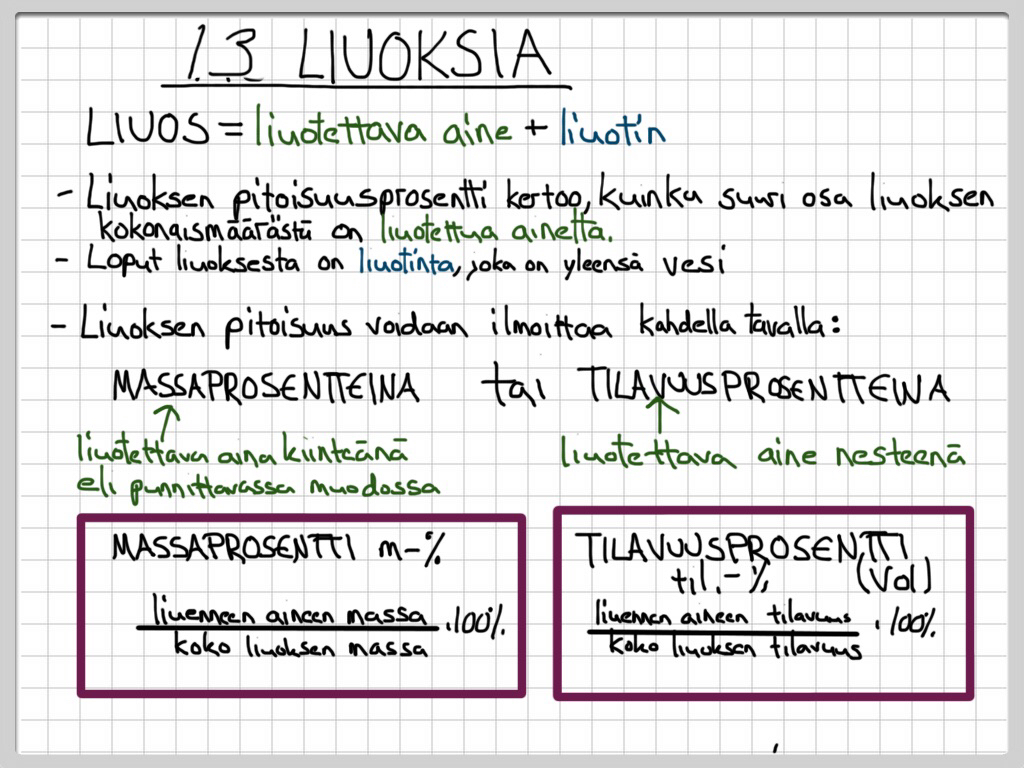 1.3 LIUOKSIA
LIUOS = liuotettava aine + liuotin
- Liuoksen pitoisuusprosentti kertoo, kuinka suuri osa liuoksen
kokonaismäärästä on liuotettua ainetta.
- Loput liuoksesta on liuotinta, joka on yleensä vesi
- Liuoksen pitoisuus voidaan ilmoittaa kahdella tavalla:
MASSAPROSENTTEINA tai TILAVUUSPROSENTTEINA
liuotettava aina kiinteänä
eli punnittavassa muodossa
liuotettava aine nesteenä
MASSAPROSENTTI m-%
liuenneen aineen massa
koko liuoksen massa
·100%
TILAVUUSPROSENTTI
til.-% (Vol)
liuennen aineen tilavuus
koko liuoksen tilavuus
·100%